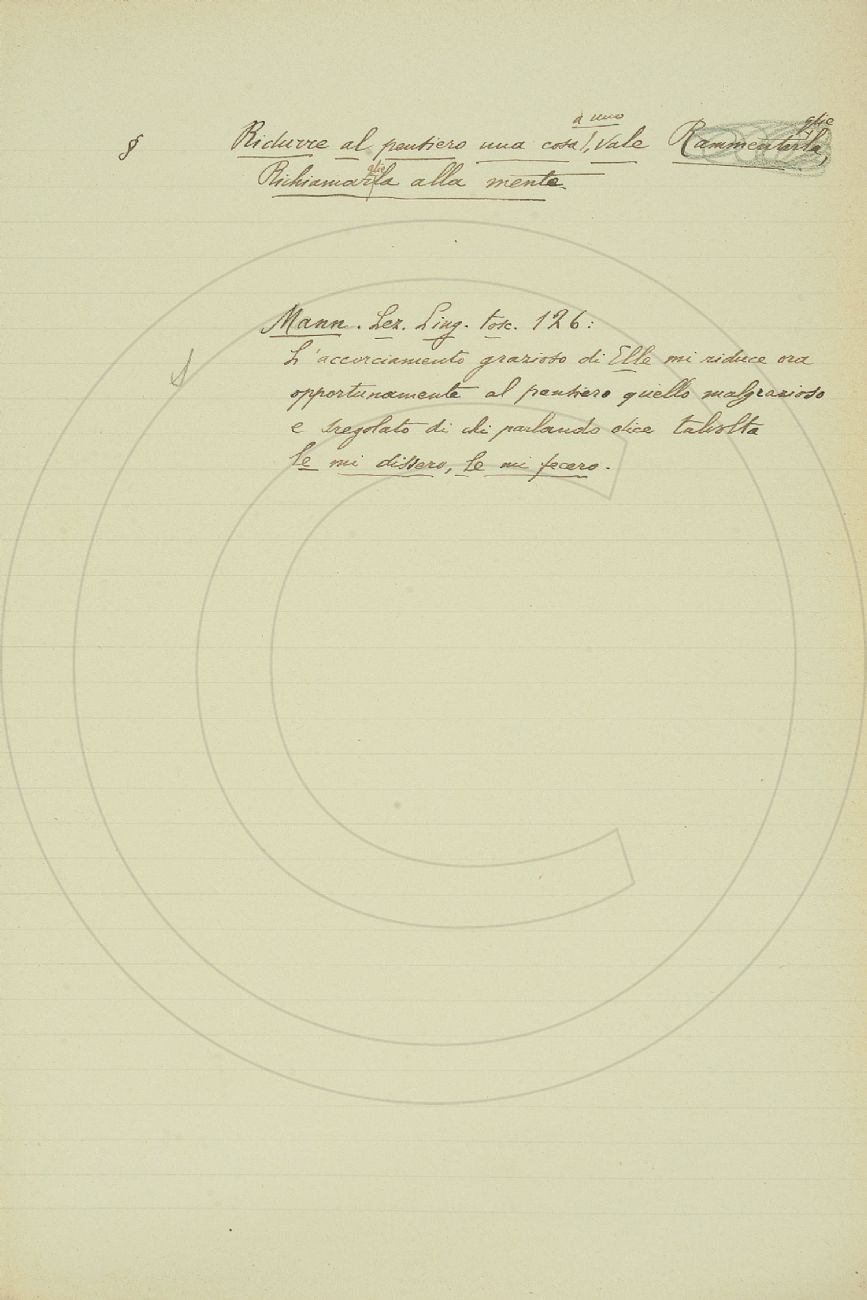 § Ridurre al pensiero una cosa a uno, vale Rammentargliela,
Richiamargliela alla mente.
Mann. Lez. Ling. tosc. 126:
L'accorciamento grazioso di Elle mi riduce ora
opportunamente al pensiero quello malgrazioso
e sregolato di chi parlando dice talvolta
Le mi dissero, Le mi fecero.